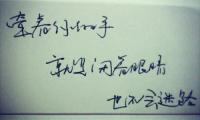 牵着你的手
就算闭着眼睛
也不会迷路